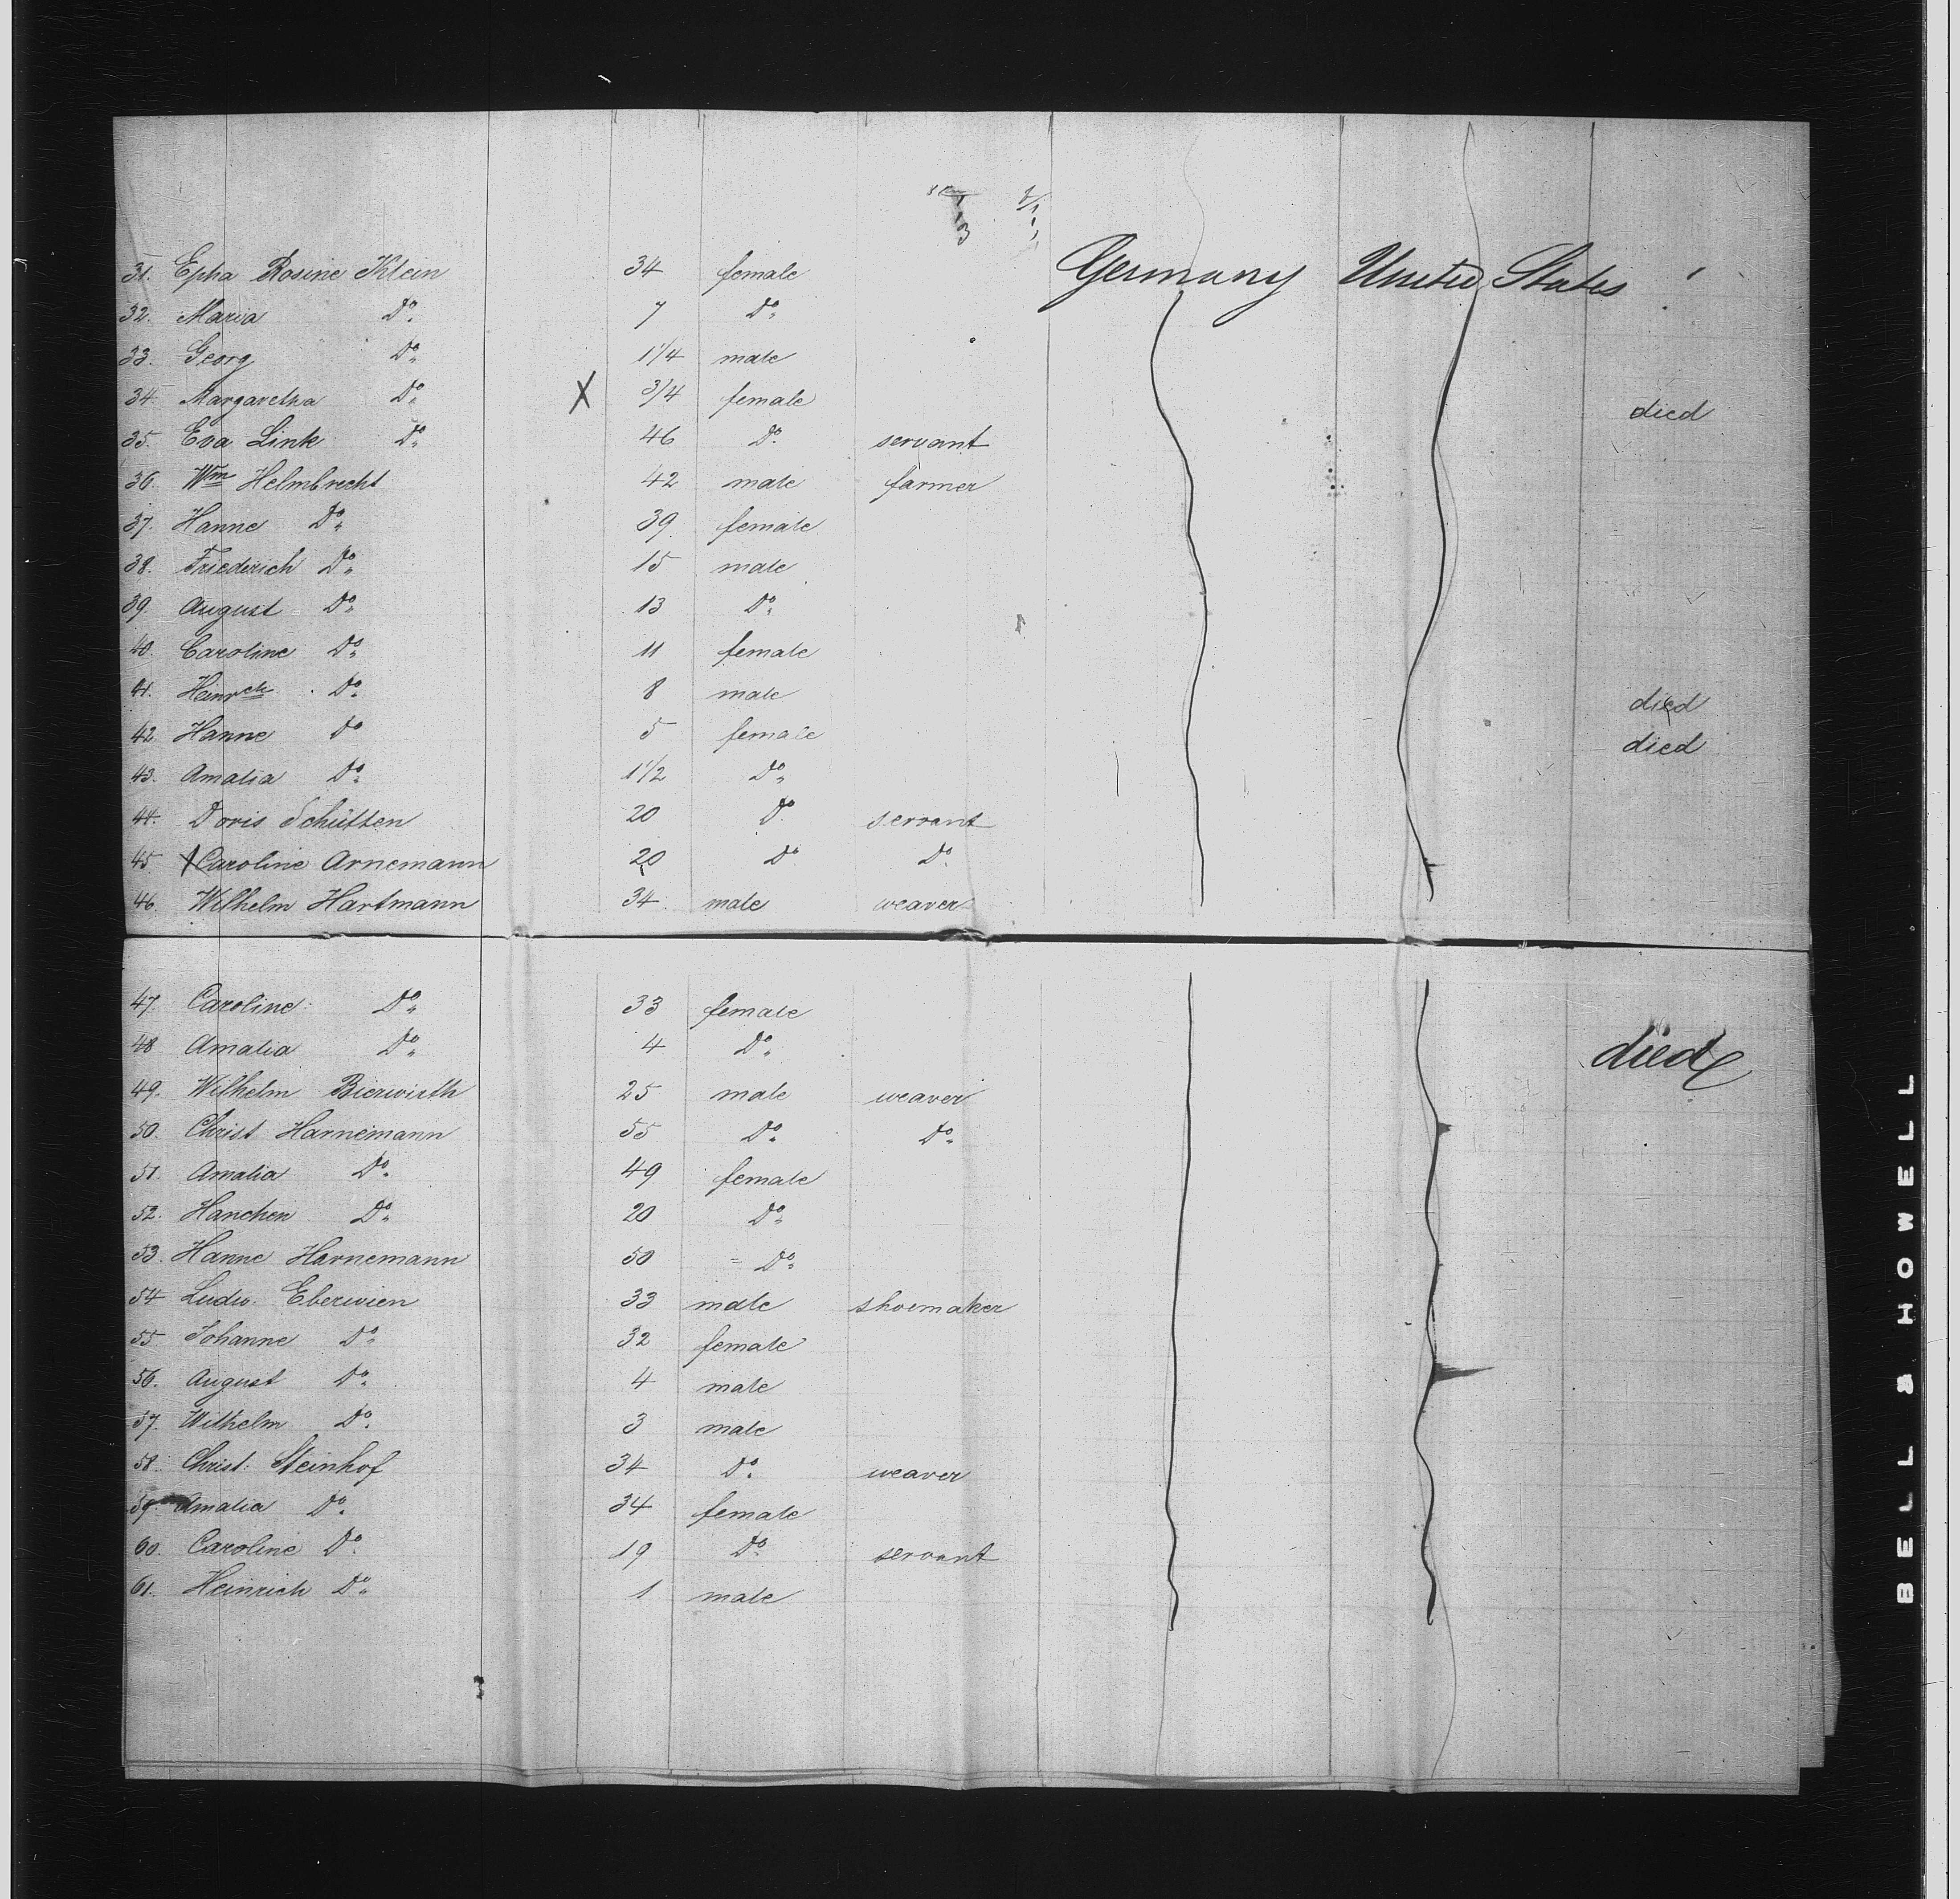 Germany United States
31. Epha Rosine Klein 34 female
32. Maria Do. 7 Do.
33. Georg Do. 1 1/4 male
34 Margaretha Do. X 3/4 female died
35. Eva Link Do. 46 Do. servant
36. Wm Helmbrecht 42 male farmer
37. Hanne Do. 39. female
38. Friederich Do. 15 male
39. August Do. 13 Do.
40. Caroline Do. 11 female
41. Heinrch Do. 8 male died
42. Hanne Do 5 female died
43. Amalia Do. 1 1/2 Do.
44. Doris Schütten 20 Do. servant
45 X Caroline Arnemann 20 Do Do.
46. Wilhelm Hartmann 34. male weaver
47. Caroline Do. 33 female
48 Amalia Do. 4 Do. died
49. Wilhelm Bierwirth 25 male weaver
50. Christ Harnemann 55 Do. Do.
51. Amalia Do. 49 female
52. Hanchen Do. 20 Do.
53. Hanne Harnemann 50 Do.
54 Ludw. Eberwien 33 male shoemaker
55 Johanne Do. 32 female
56. August Do. 4 male
57. Wilhelm Do. 3 male
58. Christ: Steinhof 34 Do. weaver
59. Amalia Do. 34 female
60. Caroline Do. 19 Do. servant
61. Heinrich Do. 1 male
BELL & HOWELL